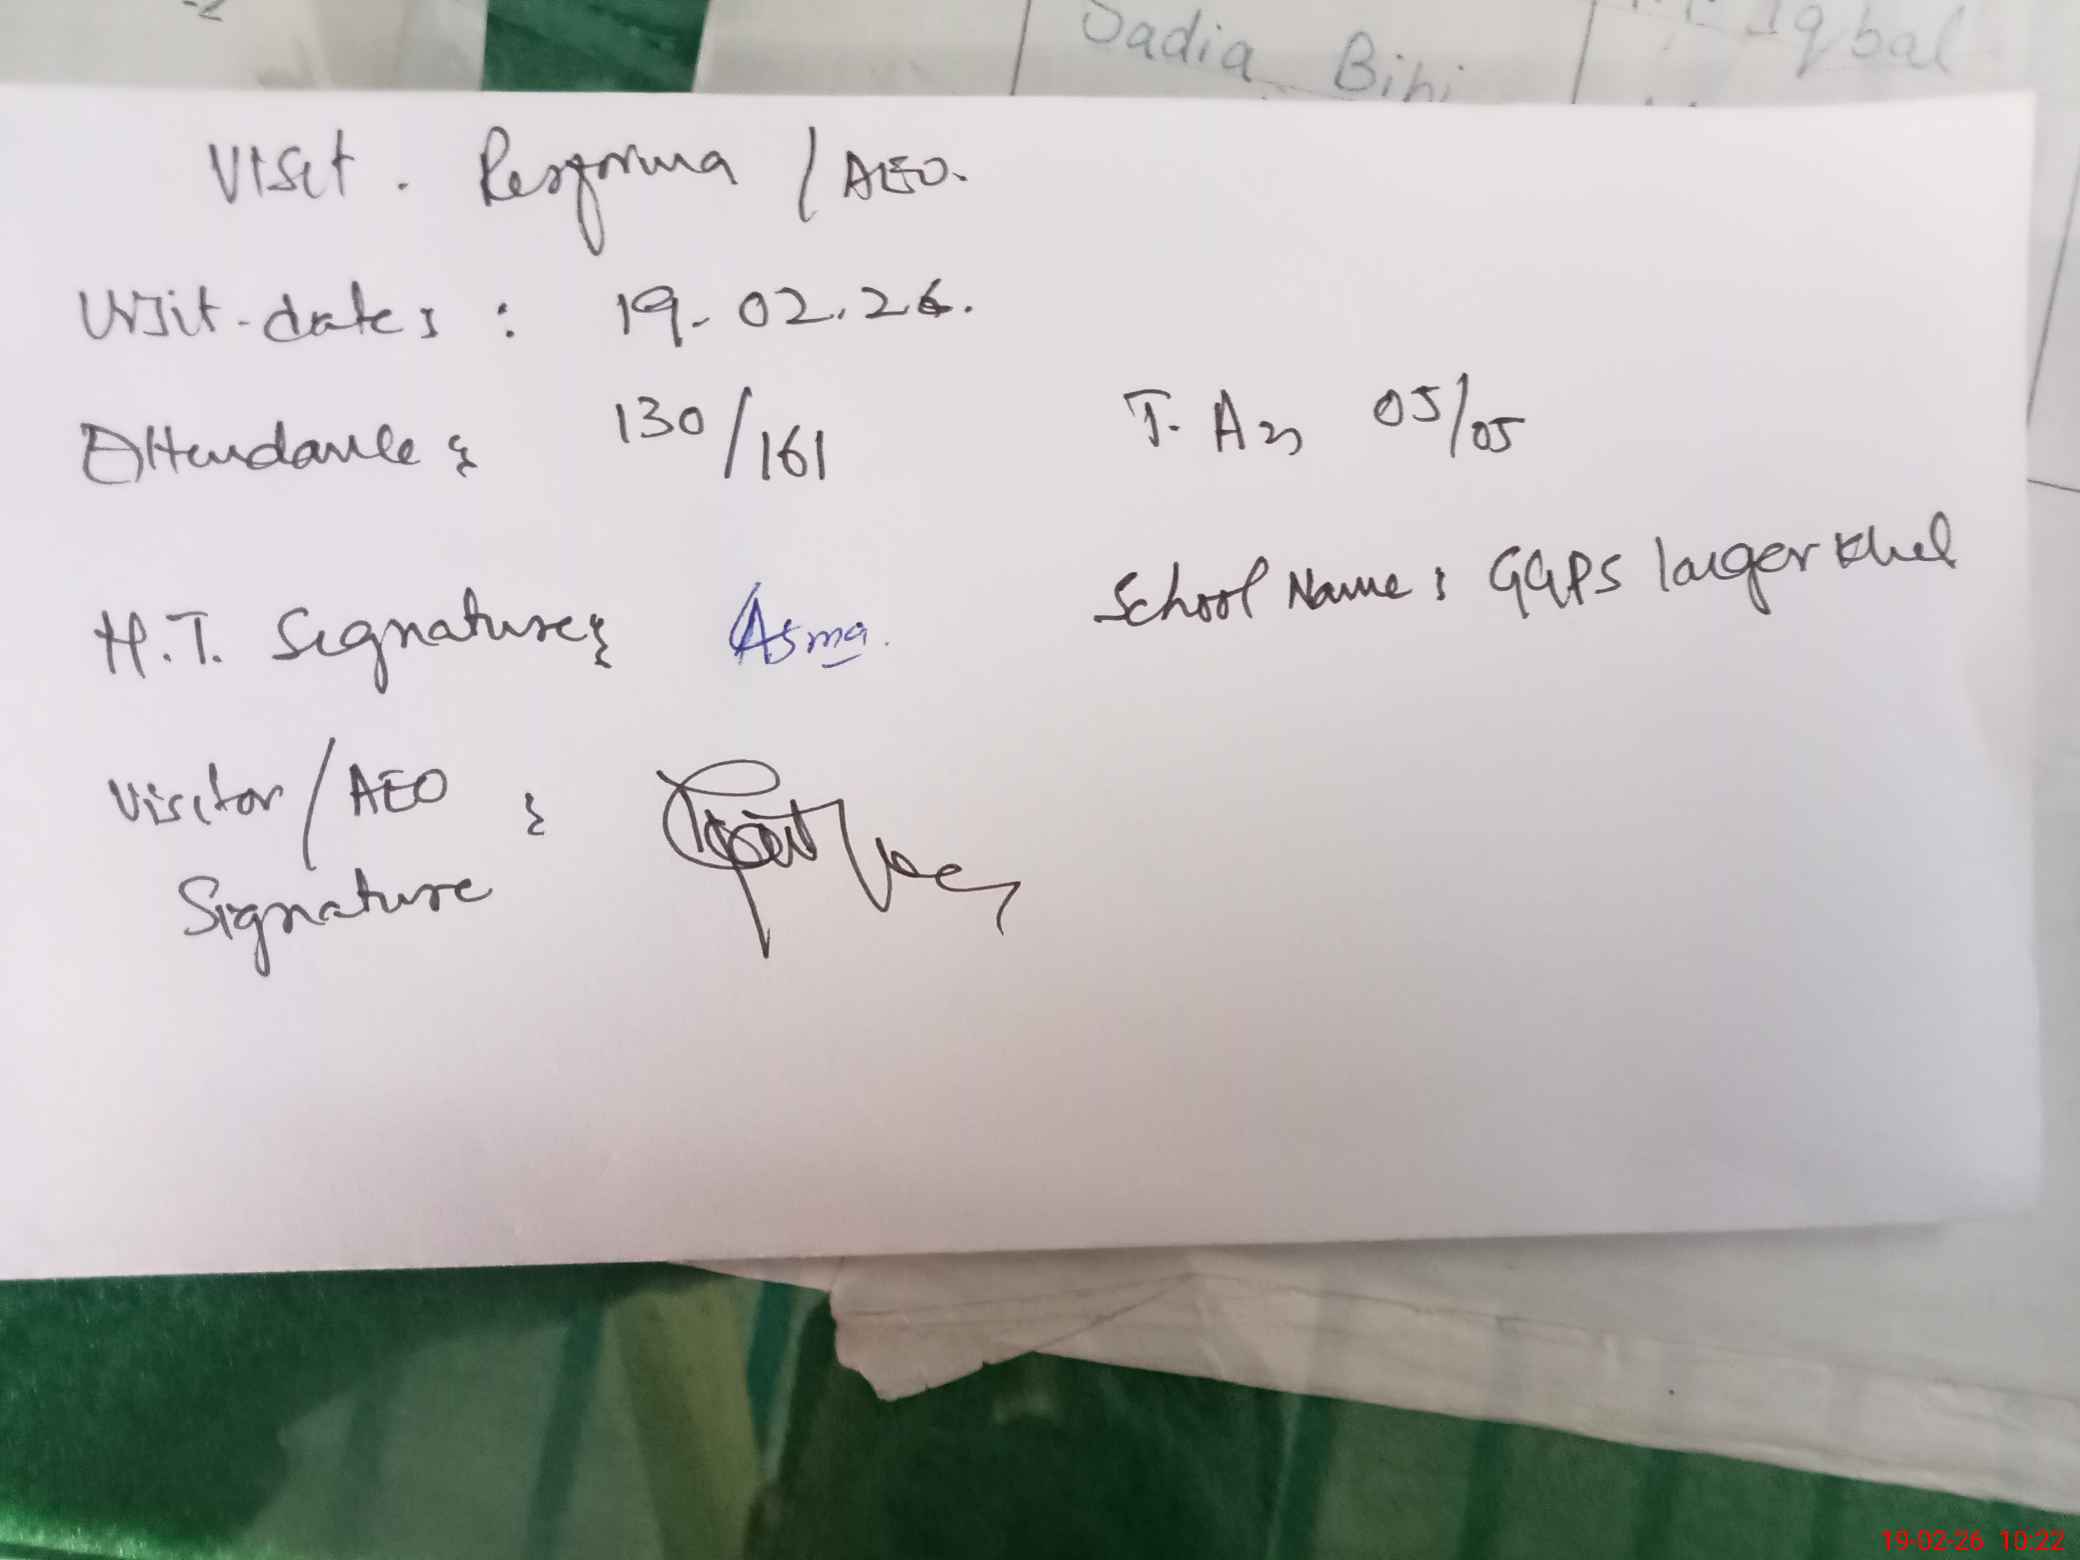 Sadia Bibi Iqbal
Visit. Proforma / AEO.
Visit-dates : 19-02.26.
Attendance : 130/161 T. A 05/05
H.T. Signature : Asma. School Name : GGPS langer khel
Visitor / AEO :
Signature
19-02-26 10:22